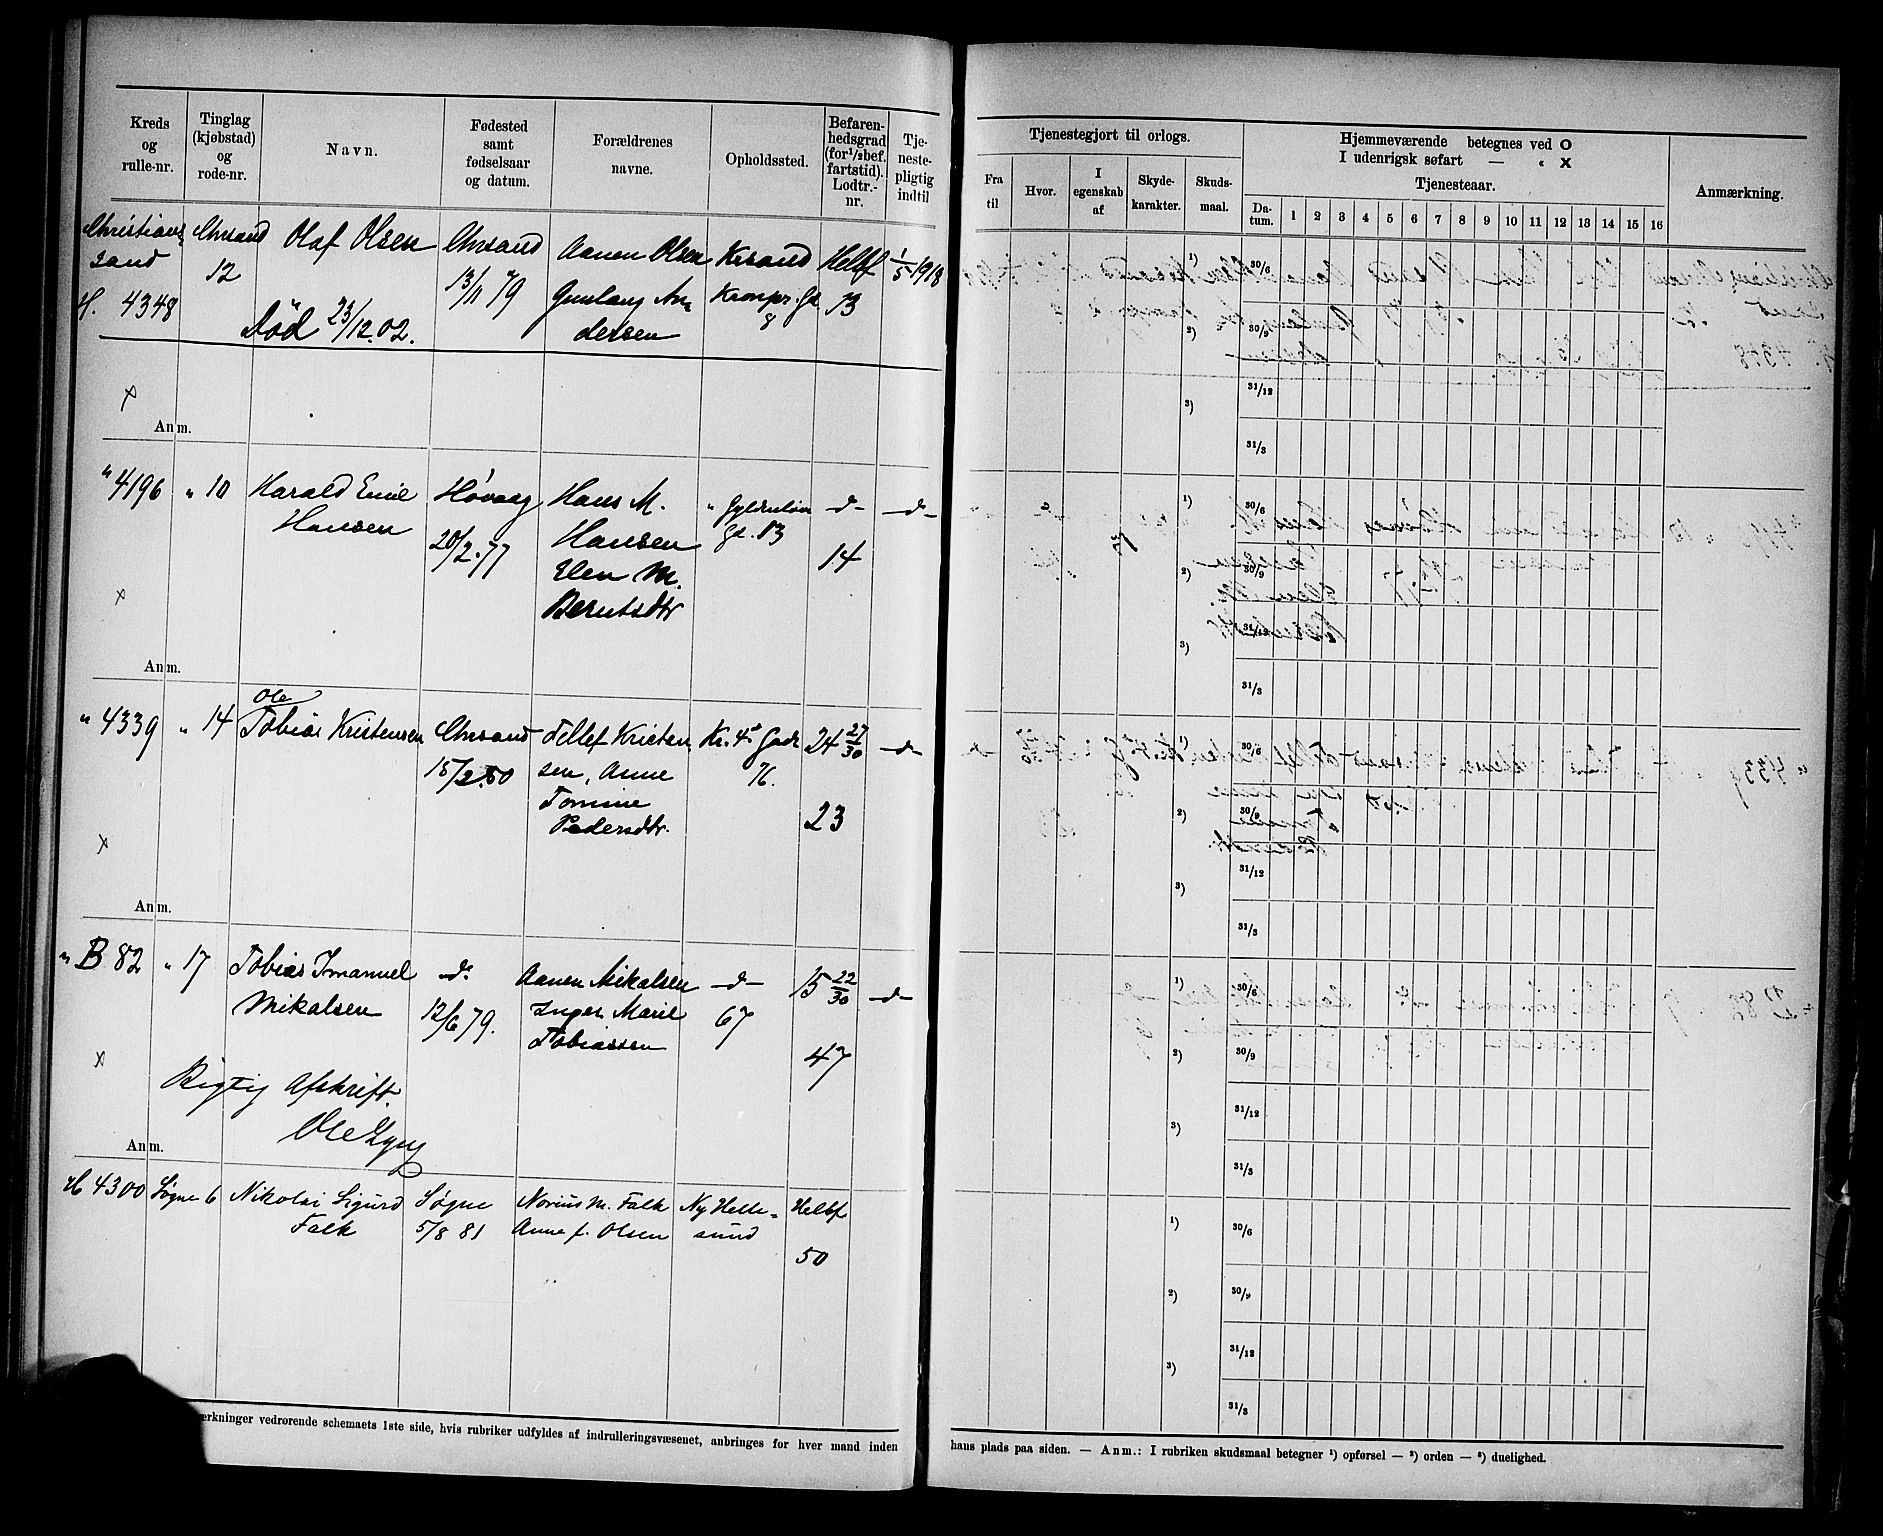 Kreds og rulle-nr.
Tinglag (kjøbstad) og rode-nr.
Navn.
Fødested samt fødselsaar og datum.
Forældrenes navne.
Opholdssted.
Befaren-hedsgrad (for 1/2bef. fartstid). Lodtr.-nr.
Tje-neste-pligtig indtil
Tjenestegjort til orlogs.
Fra til
Hvor.
I egenskab af
Skyde-karakter.
Skuds-maal.
Hjemmeværende betegnes ved O
I udenrigsk søfart — " X
Tjenesteaar.
Da-tum. 1 2 3 4 5 6 7 8 9 10 11 12 13 14 15 16
Anmærkning.
Christians Chrsand Olaf Olsen Chrsand Aanen Olsen Krsand Helbf 1/5 1918
sand 12 13/11 79 Gunlaug An Kronpr. Gd. 13
H. 4348 Død 23/12.02. dersen 8
x
Anm.
" 4196 " 10 Harald Emil Høvaag Hans M. " Gyldenløve -d- -d-
Hansen 20/2.77 Hansen Gd. 13
Elen M. 14
x Berntsdtr
Anm.
Ole
" 4339 " 14 Tobias Kristensen Chrsand Tellef Kristen Kr. 4de Gade 24 27/30 -d-
15/2.80 sen, Anne 76.
Tomine 23
x Pedersdtr.
Anm.
" B 82 " 17 Tobias Imanuel -d- Aanen Mikalsen -d- 15 22/30 -d-
Mikalsen 12/6 79. Inger Marie 67
Tobiassen
x 47
Rigtig Afskrift.
Anm.
H 4300 Søgne 6 Nikolai Sigurd Søgne Norius M. Falk Ny Helle= Helbf
Falk 5/8 81 Anne f. Olsen sund
50
1) 30/6
2) 30/9
31/12
3)
31/3
1) 30/6
2) 30/9
31/12
3)
31/3
1) 30/6
2) 30/9
31/12
3)
31/3
1) 30/6
2) 30/9
31/12
3)
31/3
1) 30/6
2) 30/9
31/12
3)
31/3
ærkninger vedrørende schemaets 1ste side, hvis rubriker udfyldes af indrulleringsvæsenet, anbringes for hver mand inden
hans plads paa siden. — Anm.: I rubriken skudsmaal betegner 1) opførsel — 2) orden — 3) duelighed.